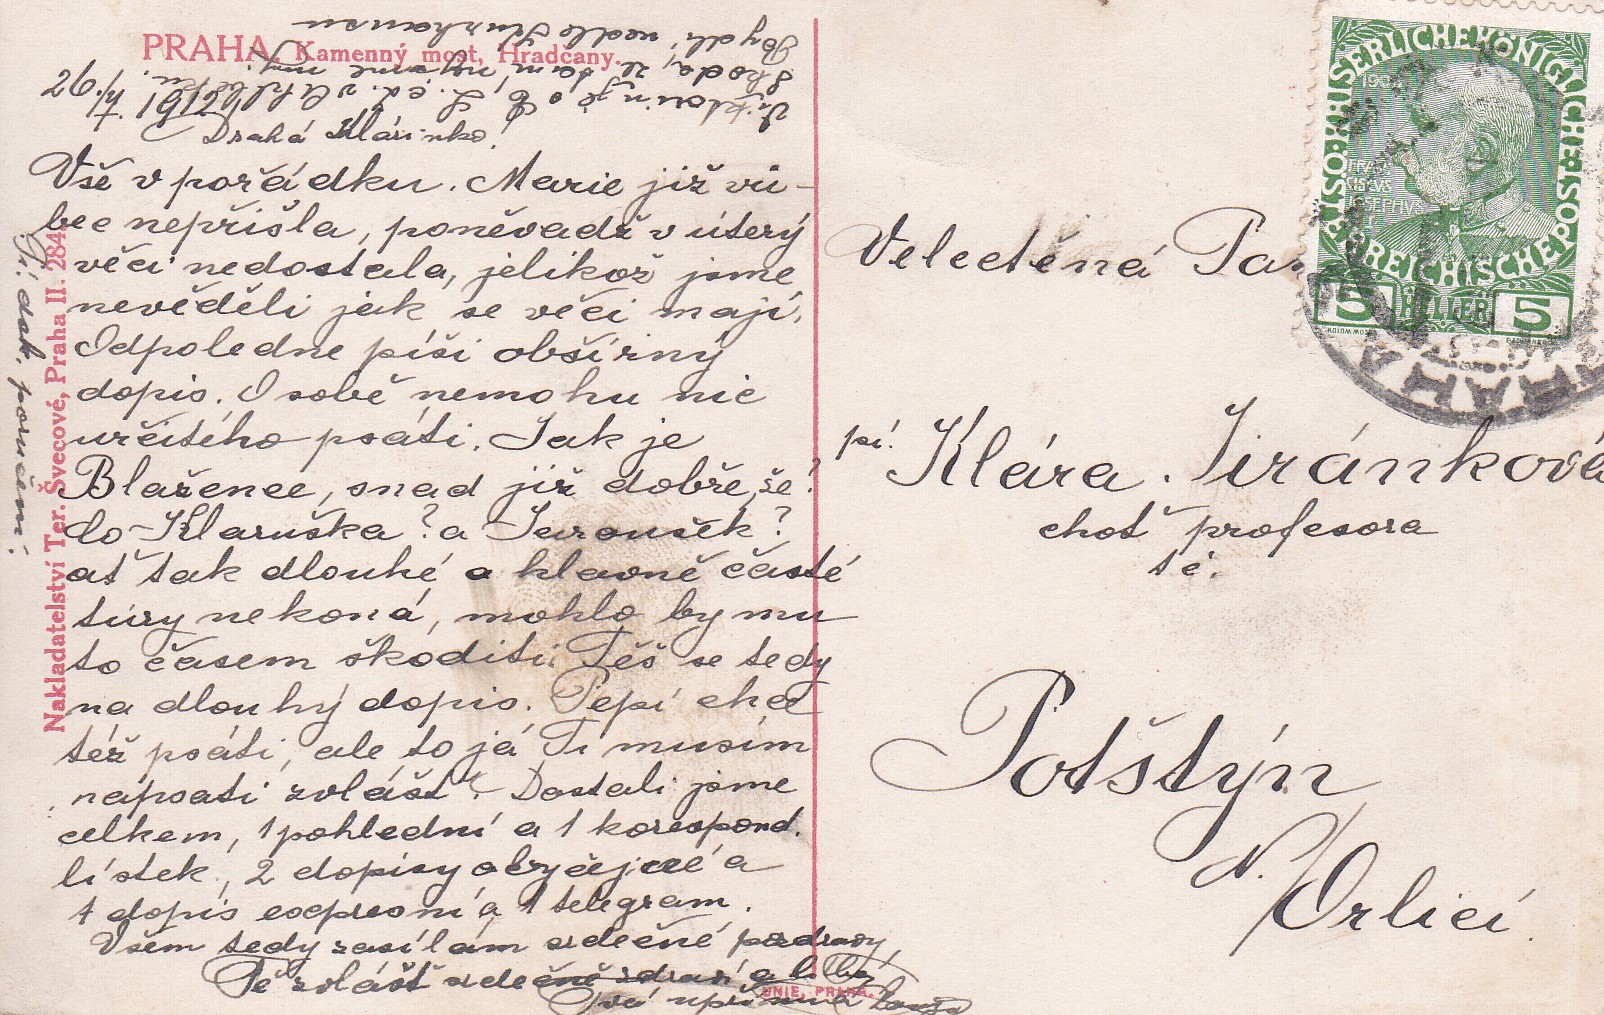 PRAHA, Kamenný most, Hradčany.
26./7. 1912
Drahá Klárinko!
Vše v pořádku. Marie již vů-
bec nepřišla, poněvadž v úterý
věci nedostala, jelikož jsme
nevěděli jak se věci mají.
Odpoledne píši obšírný
dopis. O sobě nemohu nic
určitého psáti. Jak je
Blažence, snad již dobře, že?
Co Klaruška? a Jaroušek?
ať tak dlouhé a hlavně časté
túry nekoná, mohlo by mu
to časem škoditi. Těš se tedy
na dlouhý dopis. Pepí chce
též psáti, ale to já Ti musím
napsati zvlášť. Dostali jsme
celkem, 1 pohlední a 1 korespond.
lístek, 2 dopisy obyčejné a
1 dopis expresní a 1 telegram.
Všem tedy zasílám srdečné pozdravy,
Tě zvlášť srdečně zdraví a líbá
Tvá upřímná
Viktorin je o
Škoda, že tam
Bydlí vedle Kurhausu
Ti. dak. poručem.
Nakladatelství Ter. Švecové, Praha II. 284.
UNIE, PRAHA.
Velectěná Pa
pí. Klára Jiránková
choť profesora
t. č.
Potštýn
n./Orlicí.
KAISERLICHE KÖNIGLICHE
ÖSTERREICHISCHE POST
FRAN
CISCVS
IOSEPHVS
5 HELLER 5
PRAHA